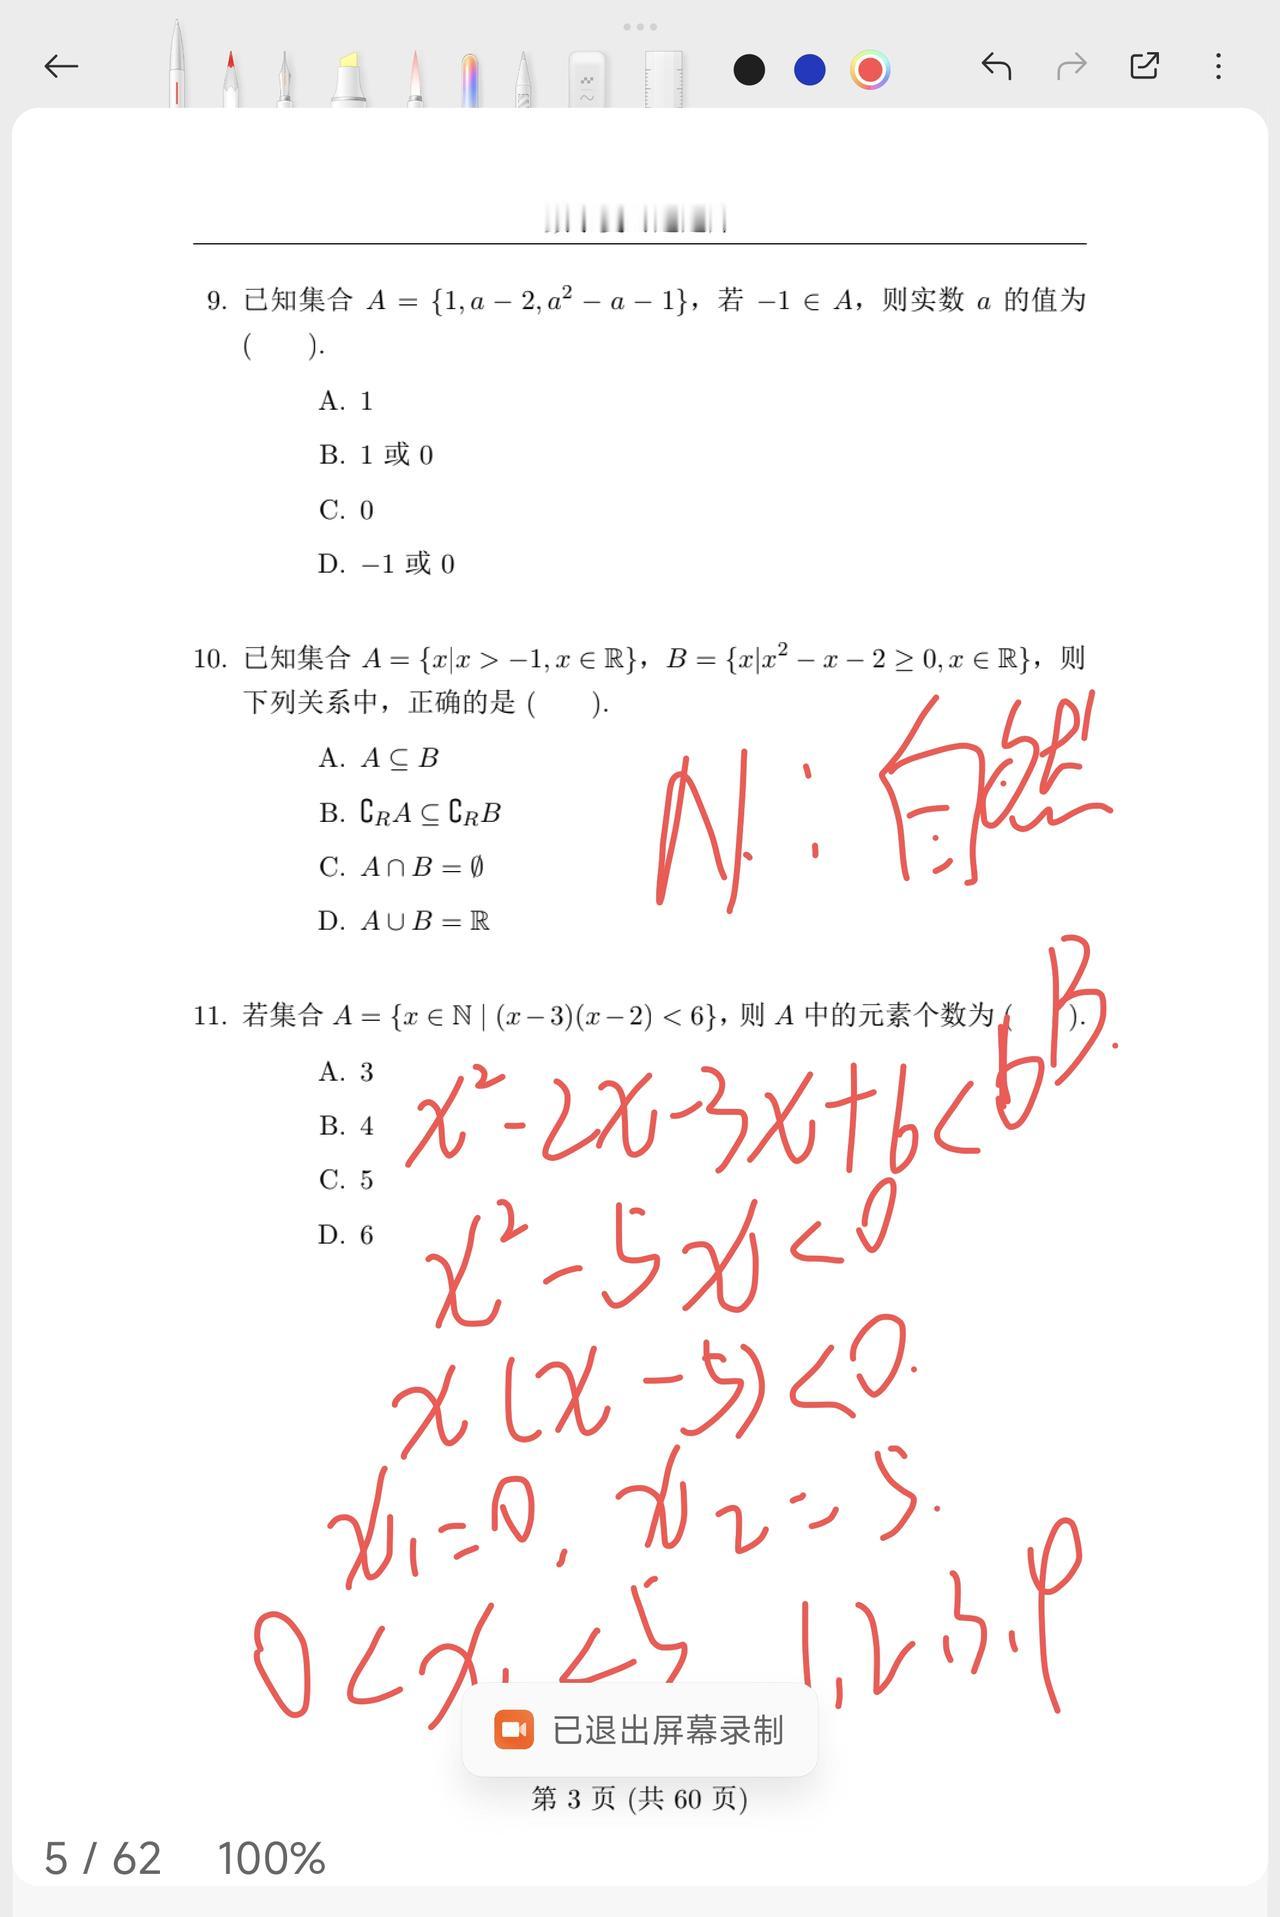 9. 已知集合 A = {1, a − 2, a² − a − 1}，若 −1 ∈ A，则实数 a 的值为
(  ).
A. 1
B. 1 或 0
C. 0
D. −1 或 0
10. 已知集合 A = {x|x > −1, x ∈ ℝ}，B = {x|x² − x − 2 ≥ 0, x ∈ ℝ}，则
下列关系中，正确的是 (  ).
A. A ⊆ B
B. ∁RA ⊆ ∁RB
C. A ∩ B = ∅
D. A ∪ B = ℝ
N：自然
11. 若集合 A = {x ∈ ℕ | (x − 3)(x − 2) < 6}，则 A 中的元素个数为 (  ).
B.
A. 3
B. 4
C. 5
D. 6
x² − 2x − 3x + 6 < 6
x² − 5x < 0
x(x − 5) < 0.
x₁ = 0, x₂ = 5.
0 < x < 5 1, 2, 3, 4
已退出屏幕录制
第 3 页 (共 60 页)
5 / 62 100%